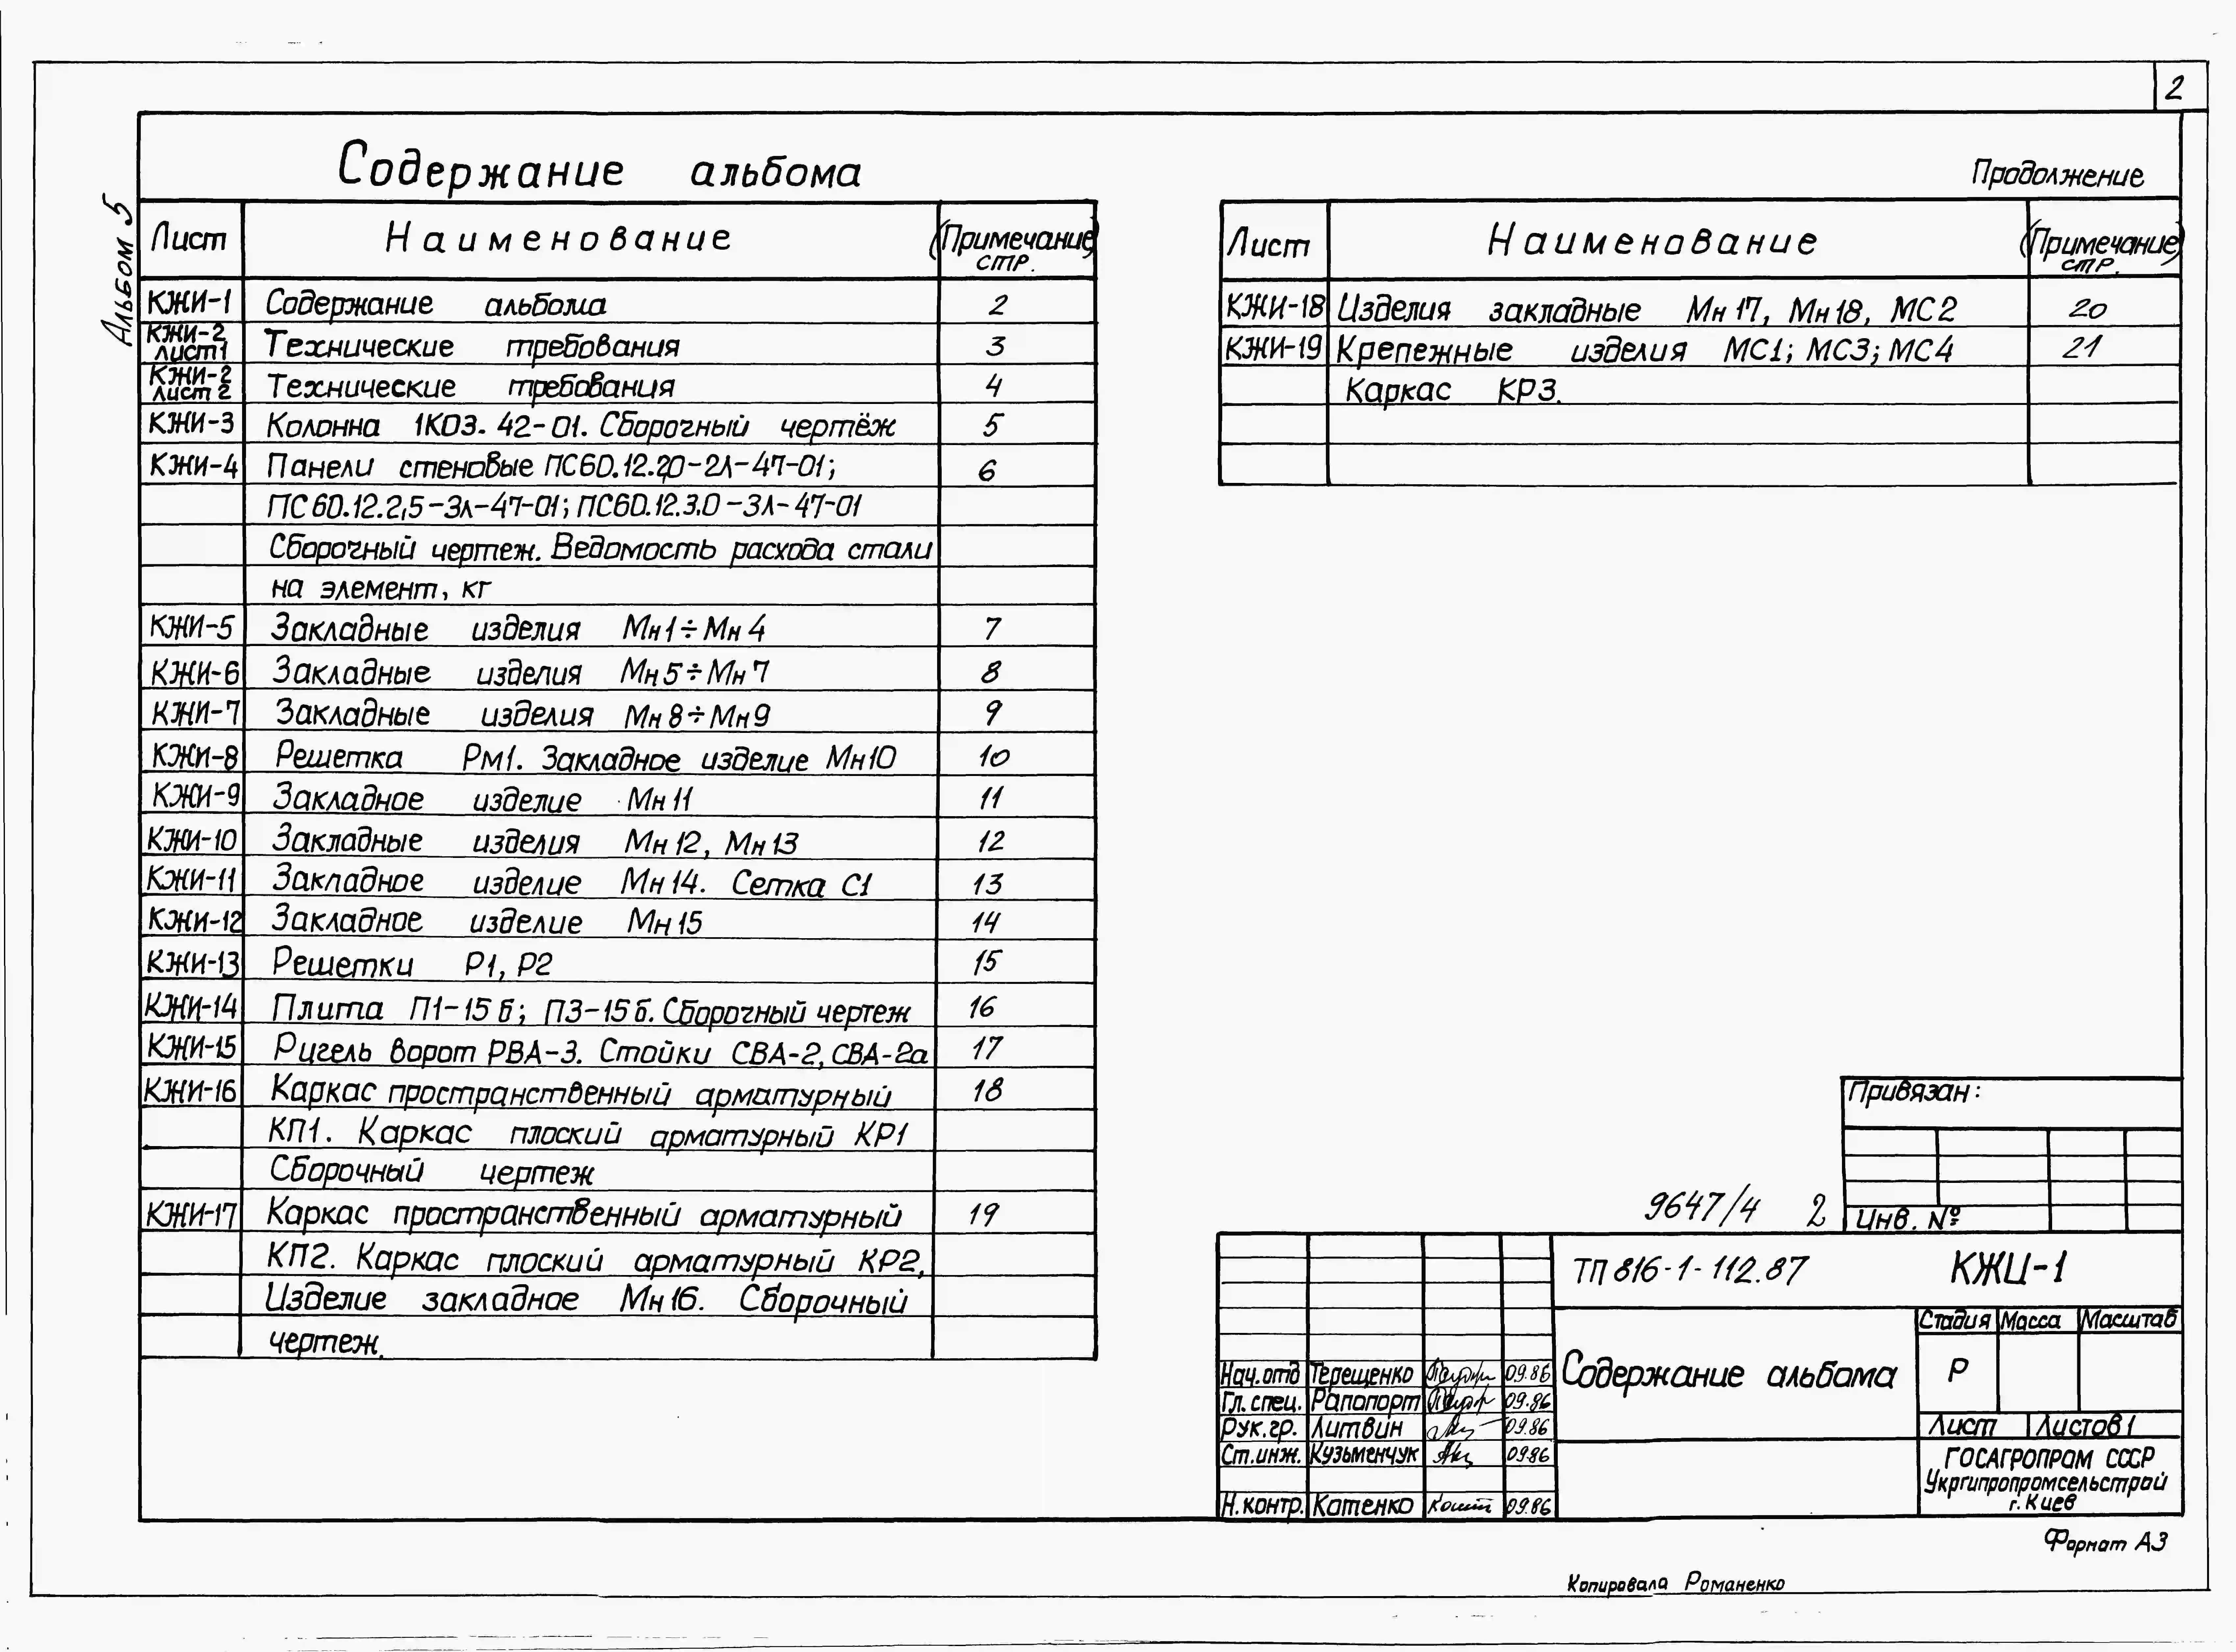 2
Альбом 5
Содержание альбома
Лист Наименование (Примечание) стр.
КЖИ-1 Содержание альбома 2
КЖИ-2 лист1 Технические требования 3
КЖИ-2 лист 2 Технические требования 4
КЖИ-3 Колонна 1КО3.42-01. Сборочный чертёж 5
КЖИ-4 Панели стеновые ПС60.12.20-2Л-47-01; 6
ПС60.12.2,5-3Л-47-01; ПС60.12.3.0-3Л-47-01
Сборочный чертеж. Ведомость расхода стали
на элемент, кг
КЖИ-5 Закладные изделия Мн1÷Мн4 7
КЖИ-6 Закладные изделия Мн5÷Мн7 8
КЖИ-7 Закладные изделия Мн8÷Мн9 9
КЖИ-8 Решетка Рм1. Закладное изделие Мн10 10
КЖИ-9 Закладное изделие Мн11 11
КЖИ-10 Закладные изделия Мн12, Мн13 12
КЖИ-11 Закладное изделие Мн14. Сетка С1 13
КЖИ-12 Закладное изделие Мн15 14
КЖИ-13 Решетки Р1, Р2 15
КЖИ-14 Плита П1-15б; П3-15б. Сборочный чертеж 16
КЖИ-15 Ригель ворот РВА-3. Стойки СВА-2, СВА-2а 17
КЖИ-16 Каркас пространственный арматурный 18
КП1. Каркас плоский арматурный КР1
Сборочный чертеж
КЖИ-17 Каркас пространственный арматурный 19
КП2. Каркас плоский арматурный КР2,
Изделие закладное Мн16. Сборочный
чертеж.
Продолжение
Лист Наименование (Примечание) стр.
КЖИ-18 Изделия закладные Мн17, Мн18, МС2 20
КЖИ-19 Крепежные изделия МС1; МС3; МС4 21
Каркас КР3.
Привязан:
Инв. №
9647/4 2
ТП 816-1-112.87 КЖИ-1
Содержание альбома
Стадия Масса Масштаб
Р
Лист Листов 1
ГОСАГРОПРОМ СССР
Укргипропромсельстрой
г. Киев
Нач.отд Терещенко 09.86
Гл. спец. Рапопорт 09.86
Рук.гр. Литвин 09.86
Ст.инж. Кузьменчук 09.86
Н.контр. Катенко 09.86
Формат А3
Копировала Романенко